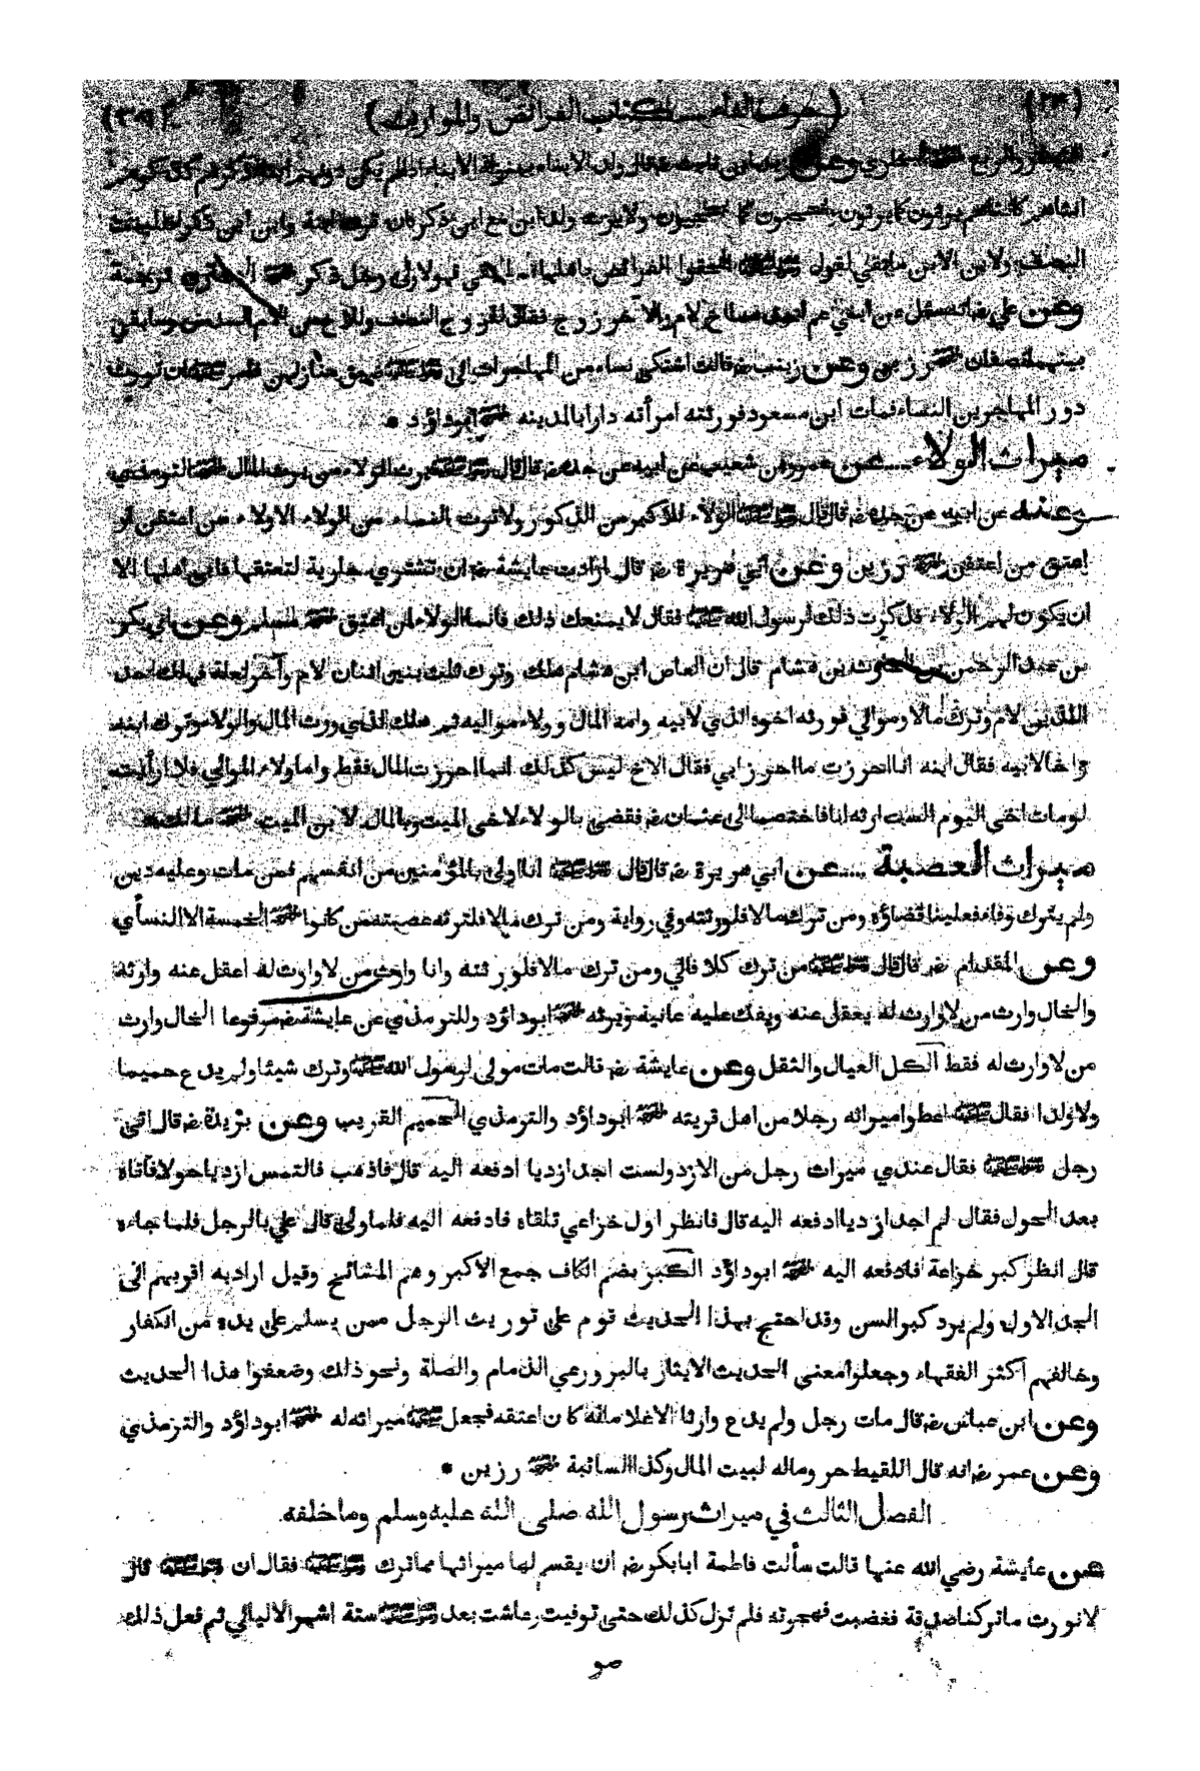 (حرف الفاء كتاب الفرائض والمواريث)
والربع وعن زيد بن ثابت قال ولد الابناء بمنزلة الابناء اذا لم يكن دونهم ابن ذكرهم كذكرهم
انثاهم كانثاهم يرثون كما يرثون ويحجبون كما يحجبون ولا يرث ولد ابن مع ابن ذكر فان ترك ابنة وابن ابن ذكر فللبنت
النصف ولابن الابن ما بقي لقوله الحقوا الفرائض باهلها فما بقي فهو لاولى رجل ذكر ترجمة
وعن علي عن ابني عم احدهما اخ لام والآخر زوج فقال للزوج النصف وللاخ من الام السدس وما بقي
بينهما نصفان رزين وعن زينب قالت اشتكى نساء من المهاجرات الى ضيق منازلهن فامر ان تورث
دور المهاجرين النساء فمات ابن مسعود فورثته امرأته دارا بالمدينه ابوداؤد
ميراث الولاء عن عمرو بن شعيب عن ابيه عن جده قال قال يرث الولاء من يرث المال الترمذي
وعنه عن ابيه عن جده قال قال الولاء للاكبر من الذكور ولا ترث النساء من الولاء الا ولاء من اعتقن او
اعتق من اعتقن رزين وعن ابي هريرة قال ارادت عايشة ان تشتري جارية لتعتقها فابى اهلها الا
ان يكون لهم الولاء فذكرت ذلك لرسول الله فقال لا يمنعك ذلك فانما الولاء لمن اعتق لمسلم وعن ابي بكر
بن عبد الرحمن بن الحارث بن هشام قال ان العاص ابن هشام هلك وترك ثلث بنين اثنان لام وآخر لعلة فهلك احد
اللذين لام وترك مالا وموالي فورثه اخوه الذي لابيه وامه المال وولاء مواليه ثم هلك الذي ورث المال والولاء وترك ابنه
واخا لابيه فقال ابنه انا احرزت ما احرز ابي فقال الاخ ليس كذلك انما احرزت المال فقط واما ولاء الموالي فلا ارأيت
لو مات اخي اليوم الست ارثه انا فاختصما الى عثمان فقضى بالولاء لاخى الميت وبالمال لابن الميت مالك
ميراث العصبة عن ابي هريرة قال قال انا اولى بالمؤمنين من انفسهم فمن مات وعليه دين
ولم يترك وفاء فعلينا قضاؤه ومن ترك مالا فلورثته وفي رواية ومن ترك مالا فلترثه عصبته من كانوا الخمسة الا النسأي
وعن المقدام قال قال من ترك كلا فالي ومن ترك مالا فلورثته وانا وارث من لا وارث له اعقل عنه وارثه
والخال وارث من لا وارث له يعقل عنه ويفك عليه عانية ويرثه ابوداؤد وللترمذي عن عايشة مرفوعا الخال وارث
من لا وارث له فقط الكل العيال والثقل وعن عايشة قالت مات مولى لرسول الله وترك شيئا ولم يدع حميما
ولا ولدا فقال اعطوا ميراثه رجلا من اهل قريته ابوداؤد والترمذي الحميم القريب وعن بريدة قال اتى
رجل فقال عندي ميراث رجل من الازد ولست اجد ازديا ادفعه اليه قال فاذهب فالتمس ازديا حولا فاتاه
بعد الحول فقال لم اجد ازديا ادفعه اليه قال فانظر اول خزاعي تلقاه فادفعه اليه فلما ولى قال علي بالرجل فلما جاءه
قال انظر كبر خزاعة فادفعه اليه ابوداؤد الكبر بضم الكاف جمع الاكبر وهم المشائخ وقيل اراد به اقربهم الى
الجد الاول ولم يرد كبر السن وقد احتج بهذا الحديث قوم على توريث الرجل ممن يسلم على يده من الكفار
وخالفهم اكثر الفقهاء وجعلوا معنى الحديث الايثار بالبر ورعي الذمام والصلة ونحو ذلك وضعفوا هذا الحديث
وعن ابن عباس قال مات رجل ولم يدع وارثا الا غلاما له كان اعتقه فجعل ميراثه له ابوداؤد والترمذي
وعن عمر انه قال اللقيط حر وماله لبيت المال وكذا السائبة رزين
الفصل الثالث في ميراث رسول الله صلى الله عليه وسلم وما خلفه
عن عايشة رضي الله عنها قالت سألت فاطمة ابا بكر ان يقسم لها ميراثها مما ترك فقال ان قال
لا نورث ما تركنا صدقة فغضبت فهجرته فلم تزل كذلك حتى توفيت وعاشت بعد ستة اشهر الا ليالي ثم فعل ذلك